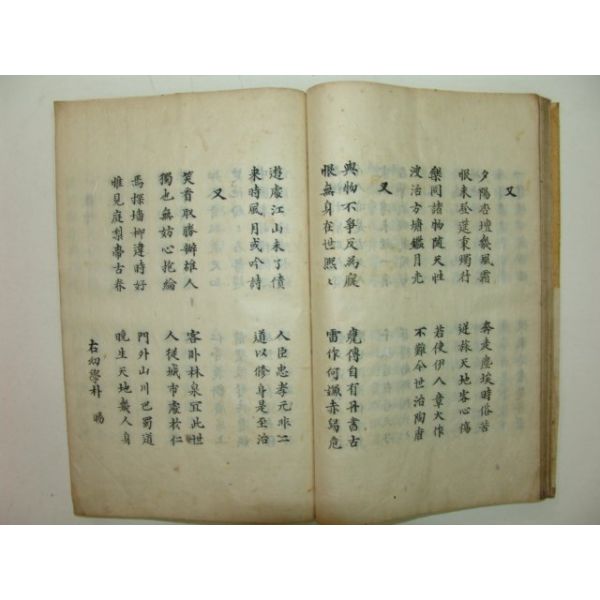 又
夕陽杏壇幾風霜 奔走塵埃時俗苦
恨未登莚秉燭行 逆旅天地客心傷
樂同諸物隨天性 若使伊人章大作
浚治方塘鑑月光 不難今世治陶唐
又
與物不爭反為 堯傳自有丹書古
恨無身在世熙〻 雷作何讖赤舃危
遊處江山未了債 人臣忠孝元非二
來時風月或吟詩 道以修身是至治
又
笑看取勝辦雄人 客卧林泉宜此世
獨也無妨心抱綸 人從城市處於仁
馬探墻柳違時好 門外山川巴蜀道
惟見庭梨帝古春 晚生天地幾人身
右幼學朴 暘